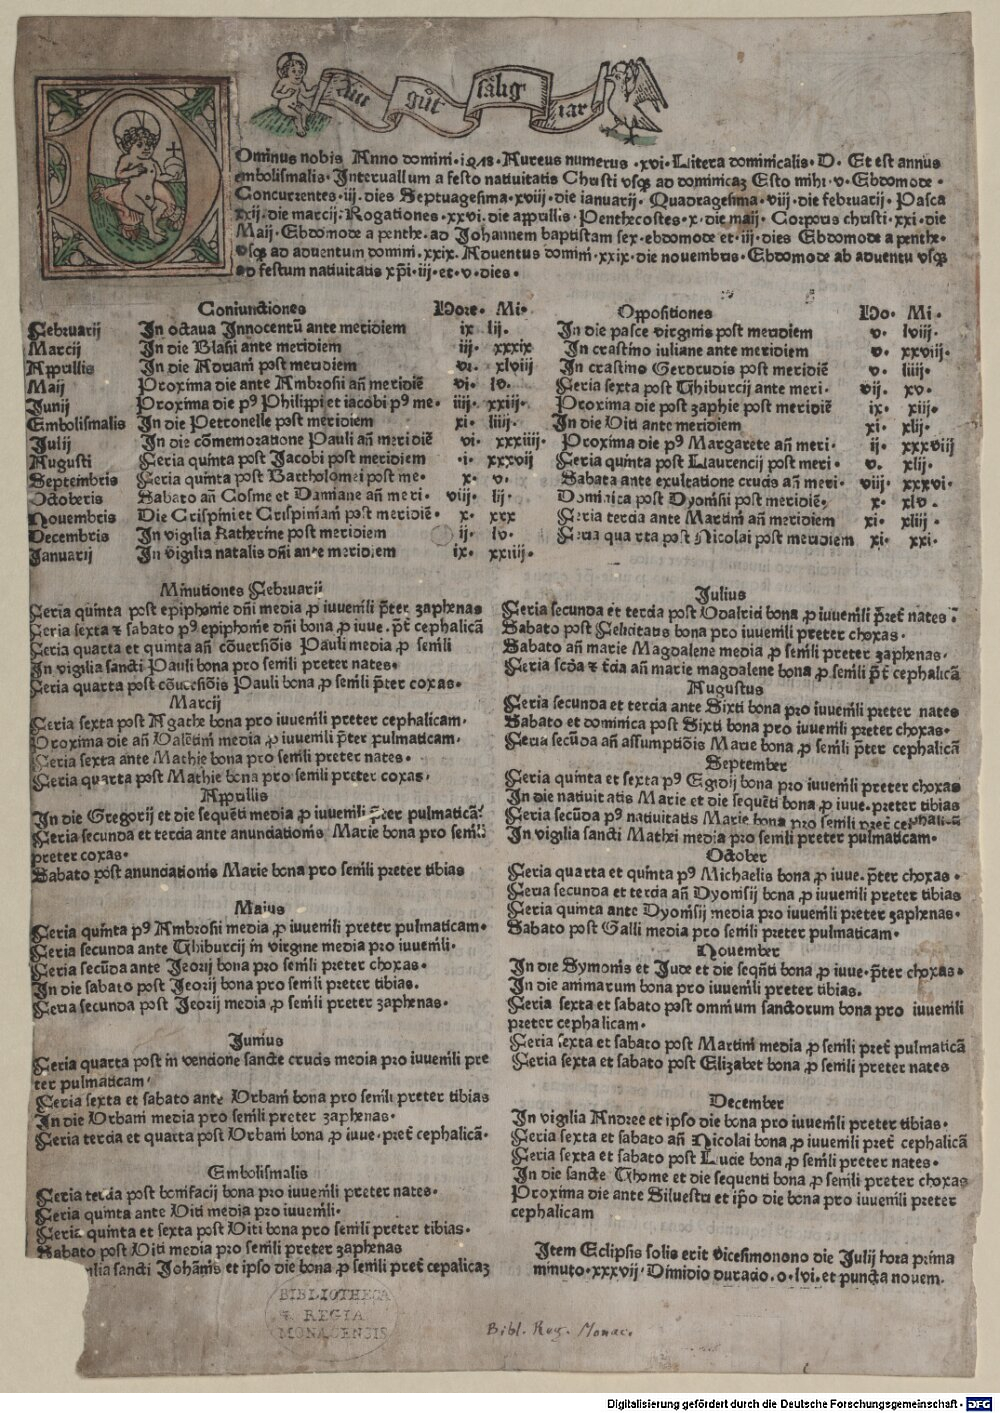 ain gůt sålig iar
Ominus nobis Anno domini · 1478 · Aureus numerus · xvi · Litera dominicalis · D · Et est annus
embolismalis · Interuallum a festo natiuitatis Christi vsqꝫ ad dominicaꝫ Esto mihi · v · Ebdomode ·
Concurrentes · iij · dies Septuagesima · xviij · die ianuarij · Quadragesima · viij · die februarij · Pasca
xxij · die marcij · Rogationes · xxvi · die apprillis · Penthecostes · x · die maij · Corpus christi · xxi · die
Maij · Ebdomode a penthe · ad Johannem baptistam sex · ebdomode et · iij · dies Ebdomode a penthe ·
vsqꝫ ad aduentum domini · xxix · Aduentus domini · xxix · die nouembris · Ebdomode ab aduentu vsqꝫ
ad festum natiuitatis xp̄i · iij · et · v · dies ·
Coniunctiones Hore · Mi ·
Februarij In octaua Innocentū ante meridiem ix lij ·
Marcij In die Blasij ante meridiem iij · xxxix
Apprillis In die Adriani post meridiem vi · xlviij
Maij Proxima die ante Ambrosij an̄ meridiē vj · lv ·
Junij Proxima die pꝰ Philippi et iacobi pꝰ me · iiij · xxiij ·
Embolismalis In die Petronelle post meridiem xi · liiij ·
Julij In die cōmemoratione Pauli an̄ meridiē vi · xxxiiij ·
Augusti Feria quinta post Jacobi post meridiem · i · xxxvij
Septembris Feria quinta post Bartholomei post me · x · v ·
Octobris Sabato an̄ Cosme et Damiane an̄ meri · viij · lij ·
Nouembris Die Crispini et Crispiniani post meridiē · x · xxx
Decembris In vigilia Katherine post meridiem ij · lv ·
Januarij In vigilia natalis dn̄i ante meridiem ix · xxiij ·
Oppositiones Ho · Mi ·
In die pasce virginis post meridiem v · lviij ·
In crastino iuliane ante meridiem v · xxviij ·
In crastino Gerdrudis post meridiē v · liiij ·
Feria sexta post Thiburcij ante meri · vij · xv ·
Proxima die post zaphie post meridiē ix · xij ·
In die Viti ante meridiem xi · xlij ·
Proxima die pꝰ Margarete an̄ meri · ij · xxxviij
Feria quinta post Laurencij post meri · v · xlij ·
Sabata ante exultatione crucis an̄ meri · viij · xxxvi ·
Dominica post Dyonisij post meridiē · x · xlv ·
Feria tercia ante Martini an̄ meridiem xi · xliij ·
Feria quarta post Nicolai post meridiem xi · xxi ·
Minutiones Februarij
Feria quinta post epiphonie dn̄i media ꝓ iuuenili p̄ter zaphenas
Feria sexta ⁊ sabato pꝰ epiphonie dn̄i bona ꝓ iuue · p̄t̄ cephalicā
Feria quarta et quinta an̄ cōuersiōis Pauli media ꝓ senili
In vigilia sancti Pauli bona pro senili preter nates ·
Feria quarta post cōuersiōis Pauli bona ꝓ senili p̄ter coxas ·
Marcij
Feria sexta post Agathe bona pro iuuenili preter cephalicam ·
Proxima die an̄ Valētini media ꝓ iuuenili p̄ter pulmaticam ·
Feria sexta ante Mathie bona pro senili preter nates ·
Feria quarta post Mathie bona pro senili preter coxas ·
Apprillis
In die Gregorij et die sequēti media ꝓ iuuenili p̄ter pulmaticā
Feria secunda et tercia ante anunciationis Marie bona pro senili
preter coxas ·
Sabato post anunciationis Marie bona pro senili preter tibias
Maius
Feria quinta pꝰ Ambrosij media ꝓ iuuenili preter pulmaticam ·
Feria secunda ante Thiburcij in virgine media pro iuuenili ·
Feria secūda ante Jeorij bona pro senili preter choxas ·
In die sabato post Jeorij bona pro senili preter tibias.
Feria secunda post Jeorij media ꝓ senili preter zaphenas ·
Junius
Feria quarta post in vencione sancte crucis media pro iuuenili pre
ter pulmaticam ·
Feria sexta et sabato ante Vrbani bona pro senili preter tibias
In die Vrbani media pro senili preter zaphenas ·
Feria tercia et quarta post Vrbani bona ꝓ iuue · pret̄ cephalicā ·
Embolismalis
Feria tercia post bonifacij bona pro iuuenili preter nates ·
Feria quinta ante Viti media pro iuuenili ·
Feria quinta et sexta post Viti bona pro senili preter tibias ·
Sabato post Viti media pro senili preter zaphenas
ilia sancti Johānis et ipso die bona ꝓ senili pret̄ cepalicaꝫ
Julius
Feria secunda et tercia post Vdalrici bona ꝓ iuuenili pret̄ nates
Sabato post Felicitatis bona pro iuuenili preter choxas ·
Sabato an̄ marie Magdalene media ꝓ senili preter zaphenas ·
Feria scd̄a ⁊ t̄cia an̄ marie magdalene bona ꝓ senili p̄t̄ cephalicā
Augustus
Feria secunda et tercia ante Sixti bona pro iuuenili preter nates
Sabato et dominica post Sixti bona pro iuuenili preter choxas ·
Feria secūda an̄ assumptiōis Marie bona ꝓ senili p̄ter cephalicā
September
Feria quinta et sexta pꝰ Egidij bona pro iuuenili preter choxas
In die natiuitatis Marie et die sequēti bona ꝓ iuue · preter tibias
Feria secūda pꝰ natiuitatis Marie bona pro senili pret̄ cephalicā
In vigilia sancti Mathei media pro senili preter pulmaticam ·
October
Feria quarta et quinta pꝰ Michaelis bona ꝓ iuue · p̄ter choxas ·
Feria secunda et tercia an̄ Dyonisij bona ꝓ iuuenili preter tibias
Feria quinta ante Dyonisij media pro iuuenili preter zaphenas ·
Sabato post Galli media pro senili preter pulmaticam ·
Nouember
In die Symonis et Jude et die seqn̄ti bona ꝓ iuue · p̄ter choxas ·
In die animarum bona pro iuuenili preter tibias.
Feria sexta et sabato post omnium sanctorum bona pro iuuenili
preter cephalicam ·
Feria sexta et sabato post Martini media ꝓ senili pret̄ pulmaticā
Feria sexta et sabato post Elizabet bona ꝓ senili preter nates
December
In vigilia Andree et ipso die bona pro iuuenili preter tibias ·
Feria sexta et sabato an̄ Nicolai bona ꝓ iuuenili pret̄ cephalicā
Feria sexta et sabato post Lucie bona ꝓ senili preter nates ·
In die sancte Thome et die sequenti bona ꝓ senili preter choxas
Proxima die ante Siluestri et ip̄o die bona pro iuuenili preter
cephalicam
Item Eclipsis solis erit vicesimonono die Julij hora prima
minuto · xxxvij · Dimidio duracio · o · lvi · et puncta nouem ·
BIBLIOTHECA
REGIA
MONACENSIS
Bibl. Reg. Monac.
Digitalisierung gefördert durch die Deutsche Forschungsgemeinschaft - DFG